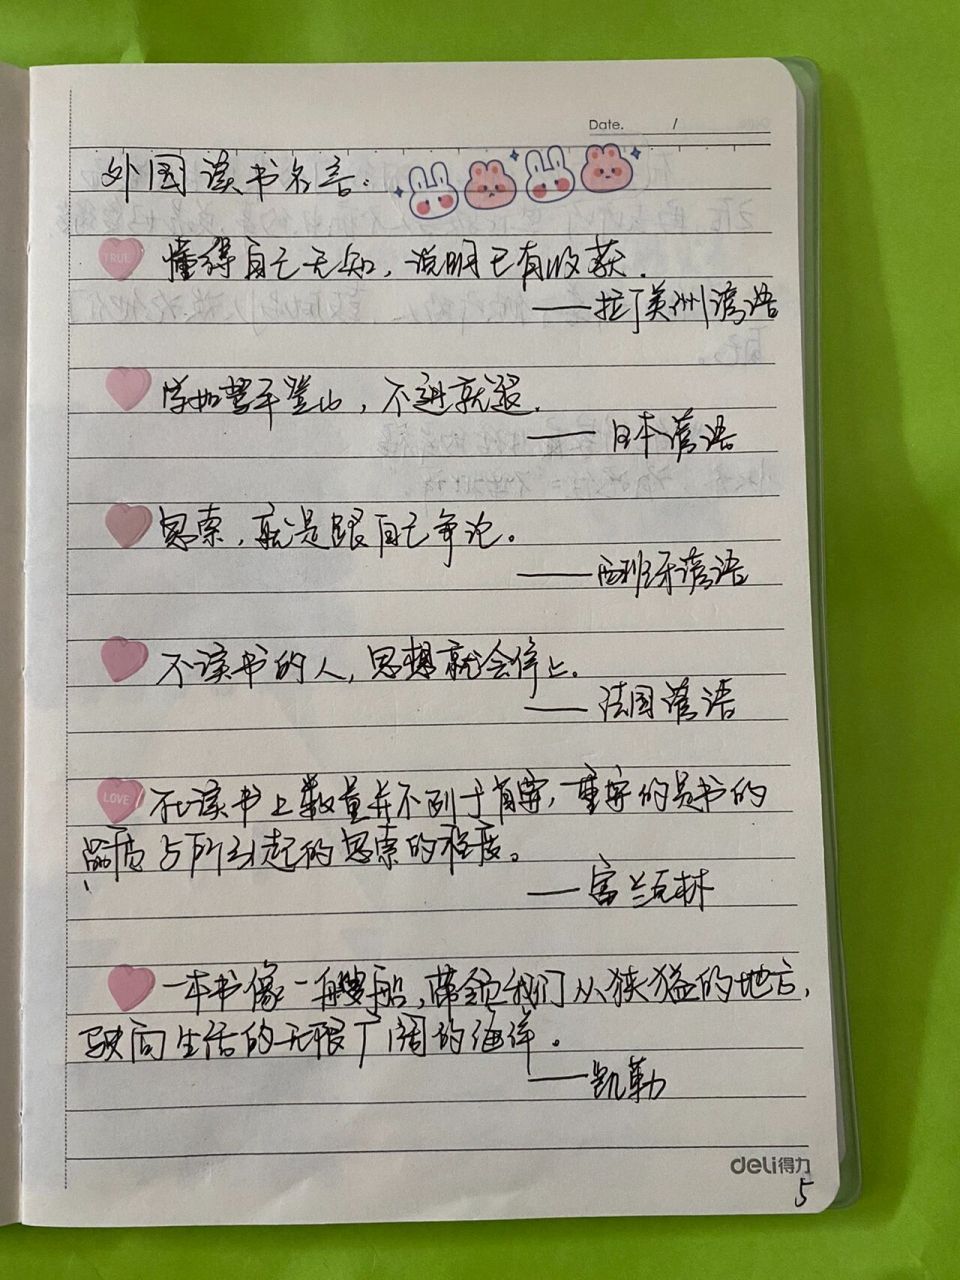 Date. /
外国读书名言:
TRUE 懂得自己无知,说明已有收获.
——拉丁美洲谚语
学如攀登山,不进就退.
——日本谚语
思索,就是跟自己争论。
——西班牙谚语
不读书的人,思想就会停止.
——法国谚语
LOVE 读书上数量并不列于首要,重要的是书的
品质与所引起的思索的程度。
——富兰克林
一本书像一艘船,带领我们从狭隘的地方,
驶向生活的无限广阔的海洋。
——凯勒
deli得力
5